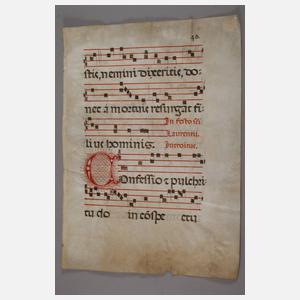 40.
stis, nemini dixeritis, do-
nec a mortuis resurgat fi-
In festo sti
Laurentii.
lius hominis. Introitus.
Confessio & pulchri
tudo in cōspe ctu